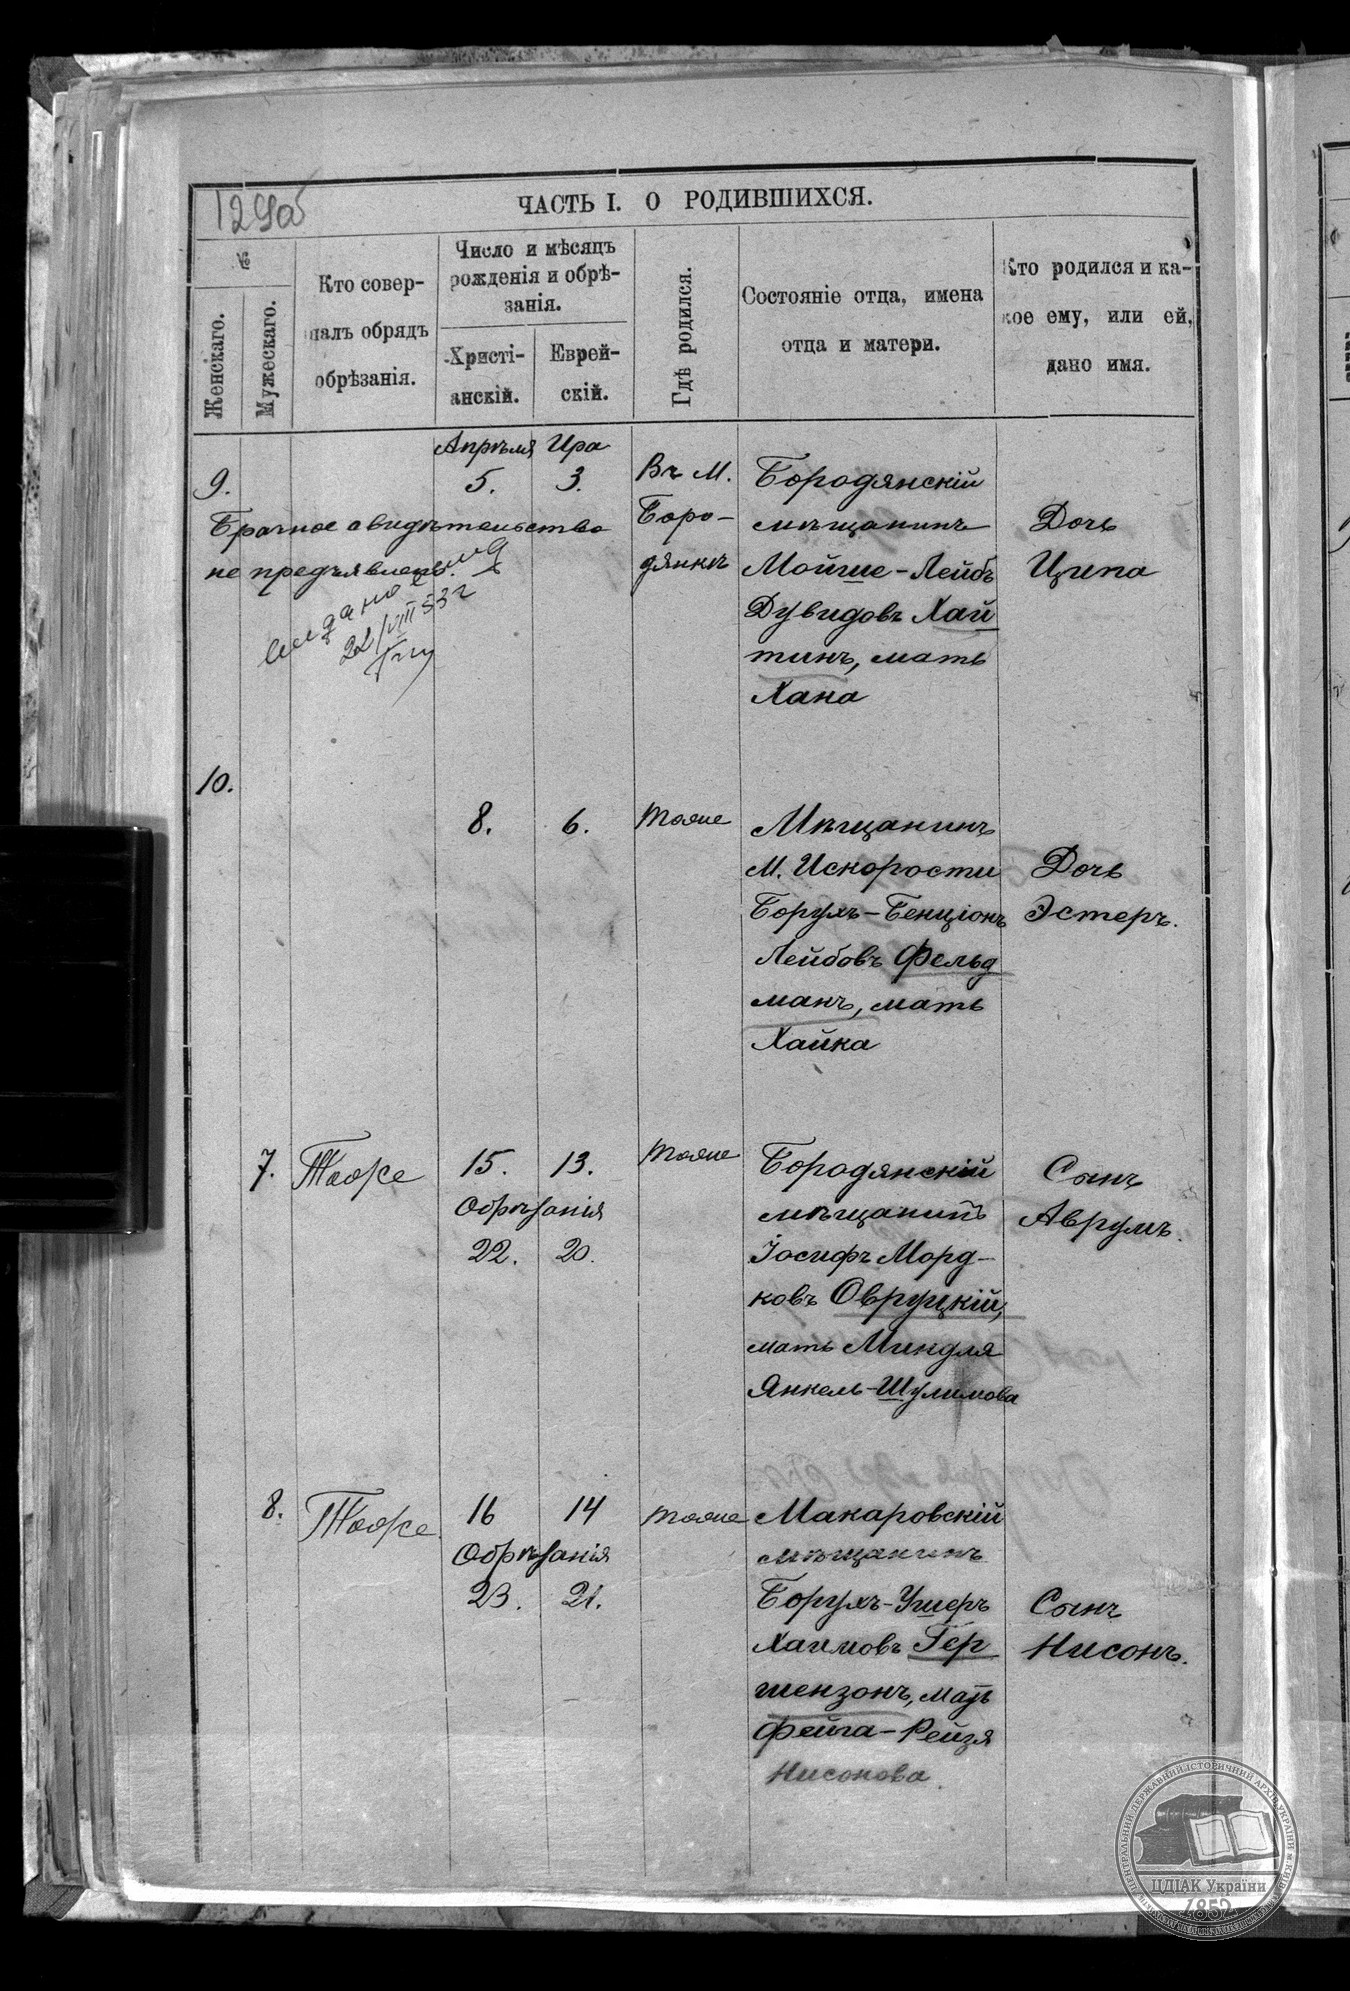 129об
ЧАСТЬ I. О РОДИВШИХСЯ.
№
Женскаго.
Мужескаго.
Кто совер-
шалъ обрядъ
обрѣзанія.
Число и мѣсяцъ
рожденія и обрѣ-
занія.
Христі-
анскій.
Еврей-
скій.
Гдѣ родился.
Состояніе отца, имена
отца и матери.
Кто родился и ка-
кое ему, или ей,
дано имя.
9.
Апрѣля Ира
5. 3.
Брачное свидѣтельство
не предъявлено.
22/VIII 33 г
Въ М.
Боро-
дянкѣ
Бородянскій
мѣщанинъ
Мойше-Лейбъ
Дувидовъ Хай
тинъ, мать
Хана
Дочь
Ципа
10.
8. 6.
тоже
Мѣщанинъ
М. Искорости
Борухъ-Бенціонъ
Лейбовъ Фельд
манъ, мать
Хайка
Дочь
Эстеръ.
7.
Тоже
15. 13.
Обрѣзанія
22. 20.
тоже
Бородянскій
мѣщанинъ
Іосифъ Морд-
ковъ Овруцкій,
мать Миндля
Янкель-Шулимова
Сынъ
Аврумъ.
8.
Тоже
16 14
Обрѣзанія
23. 21.
тоже
Макаровскій
мѣщанинъ
Борухъ-Ушеръ
Хаимовъ Гер
шензонъ, мать
Фейга-Рейзя
Нисонова.
Сынъ
Нисонъ.
ЦЕНТРАЛЬНИЙ ДЕРЖАВНИЙ ІСТОРИЧНИЙ АРХІВ УКРАЇНИ
ЦДІАК України
1852